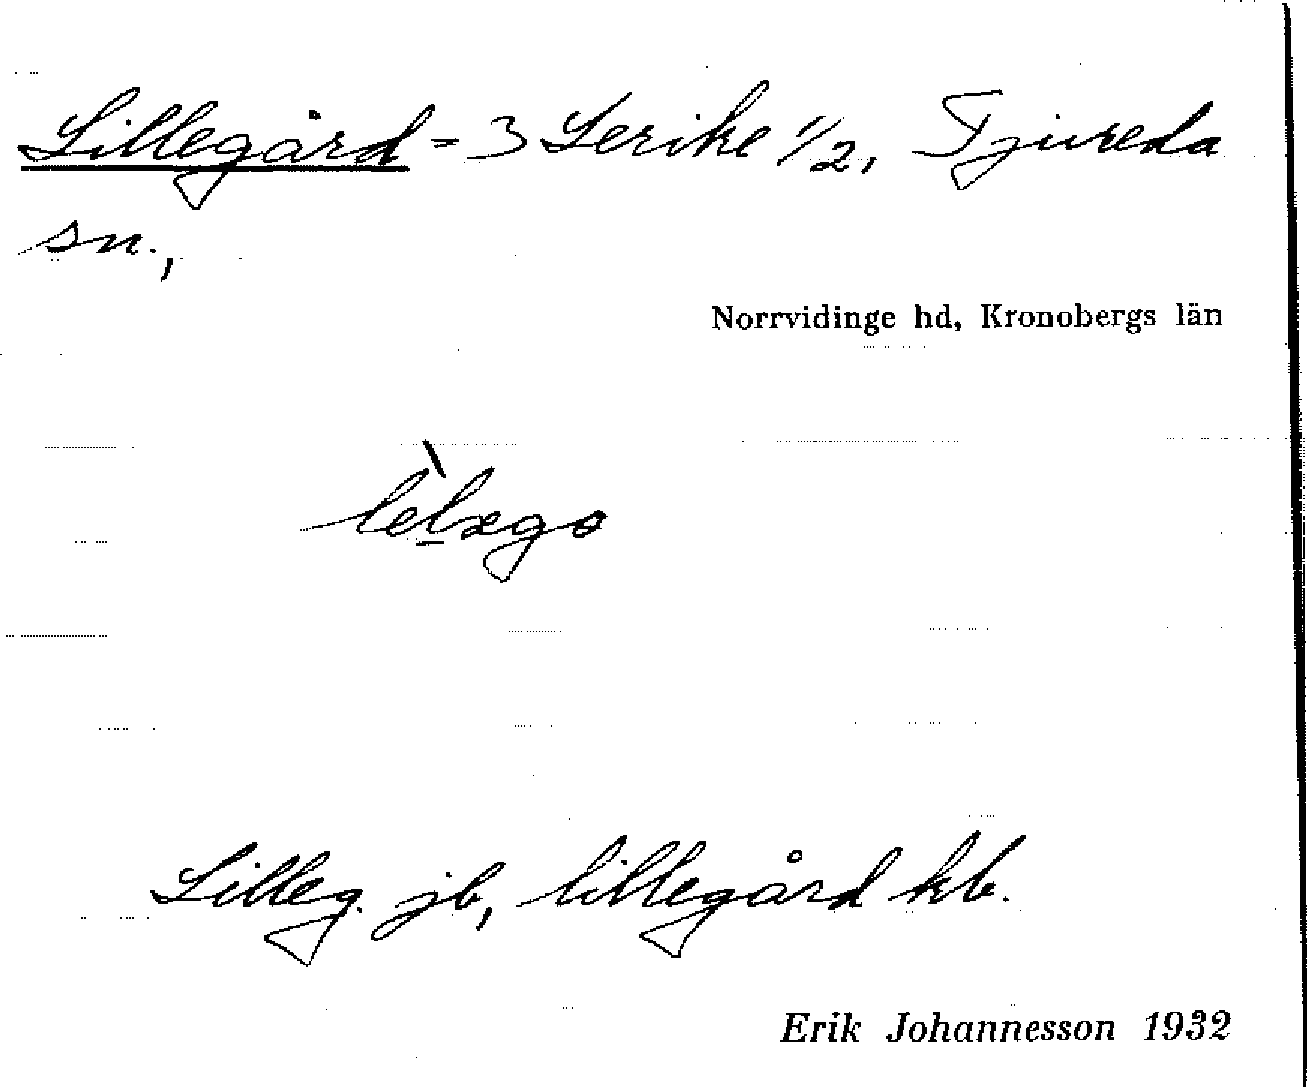 Lillegård = 3 Lerike 1/2, Tjureda
sn.,
Norrvidinge hd, Kronobergs län
lèlægo
Lilleg. jb, lillegård kb.
Erik Johannesson 1932